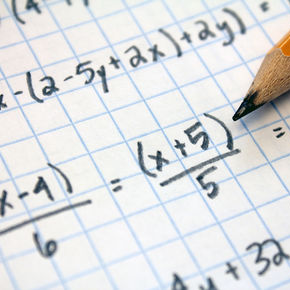 x-(2-5y+2x)+2y) =
x-4) / 6 = (x+5) / 5 =
4y+32